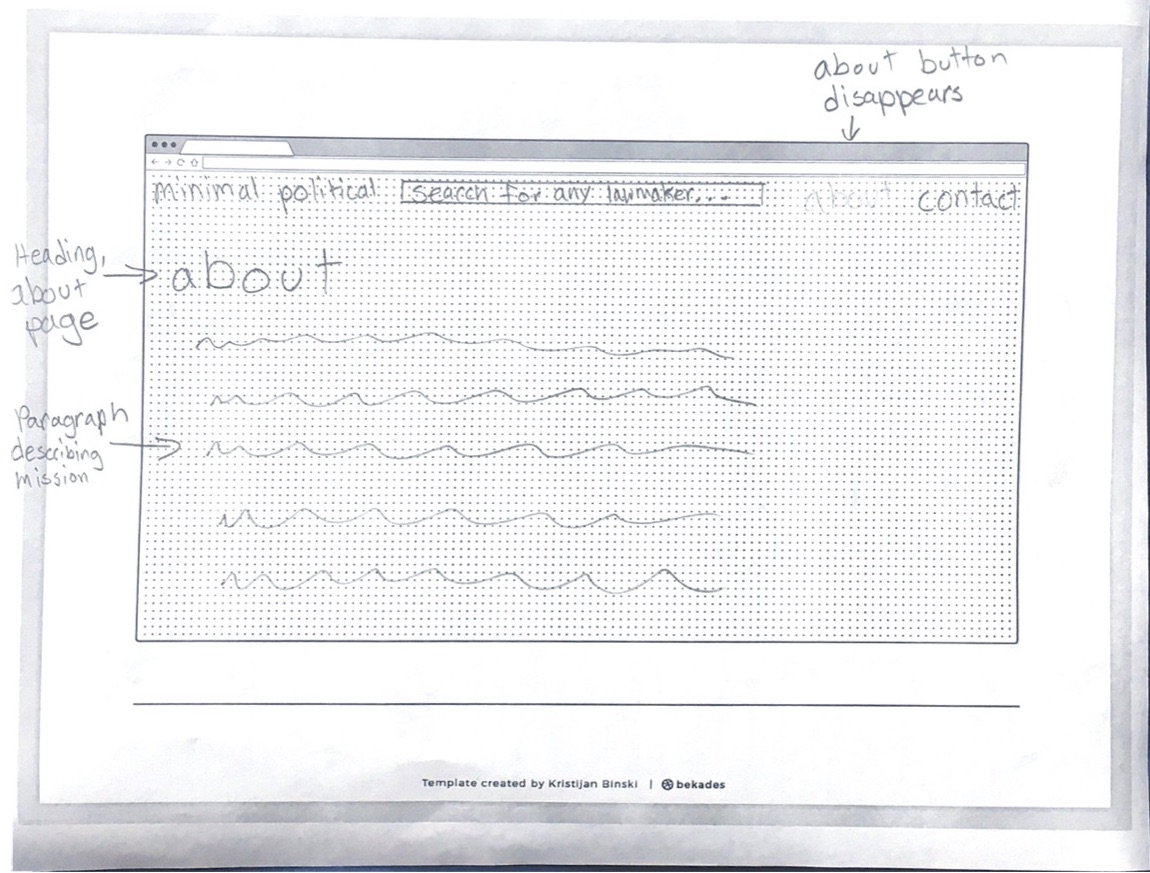 about button
disappears
minimal political
search for any lawmaker...
about
contact
Heading,
about
page
about
Paragraph
describing
mission
Template created by Kristijan Binski | bekades